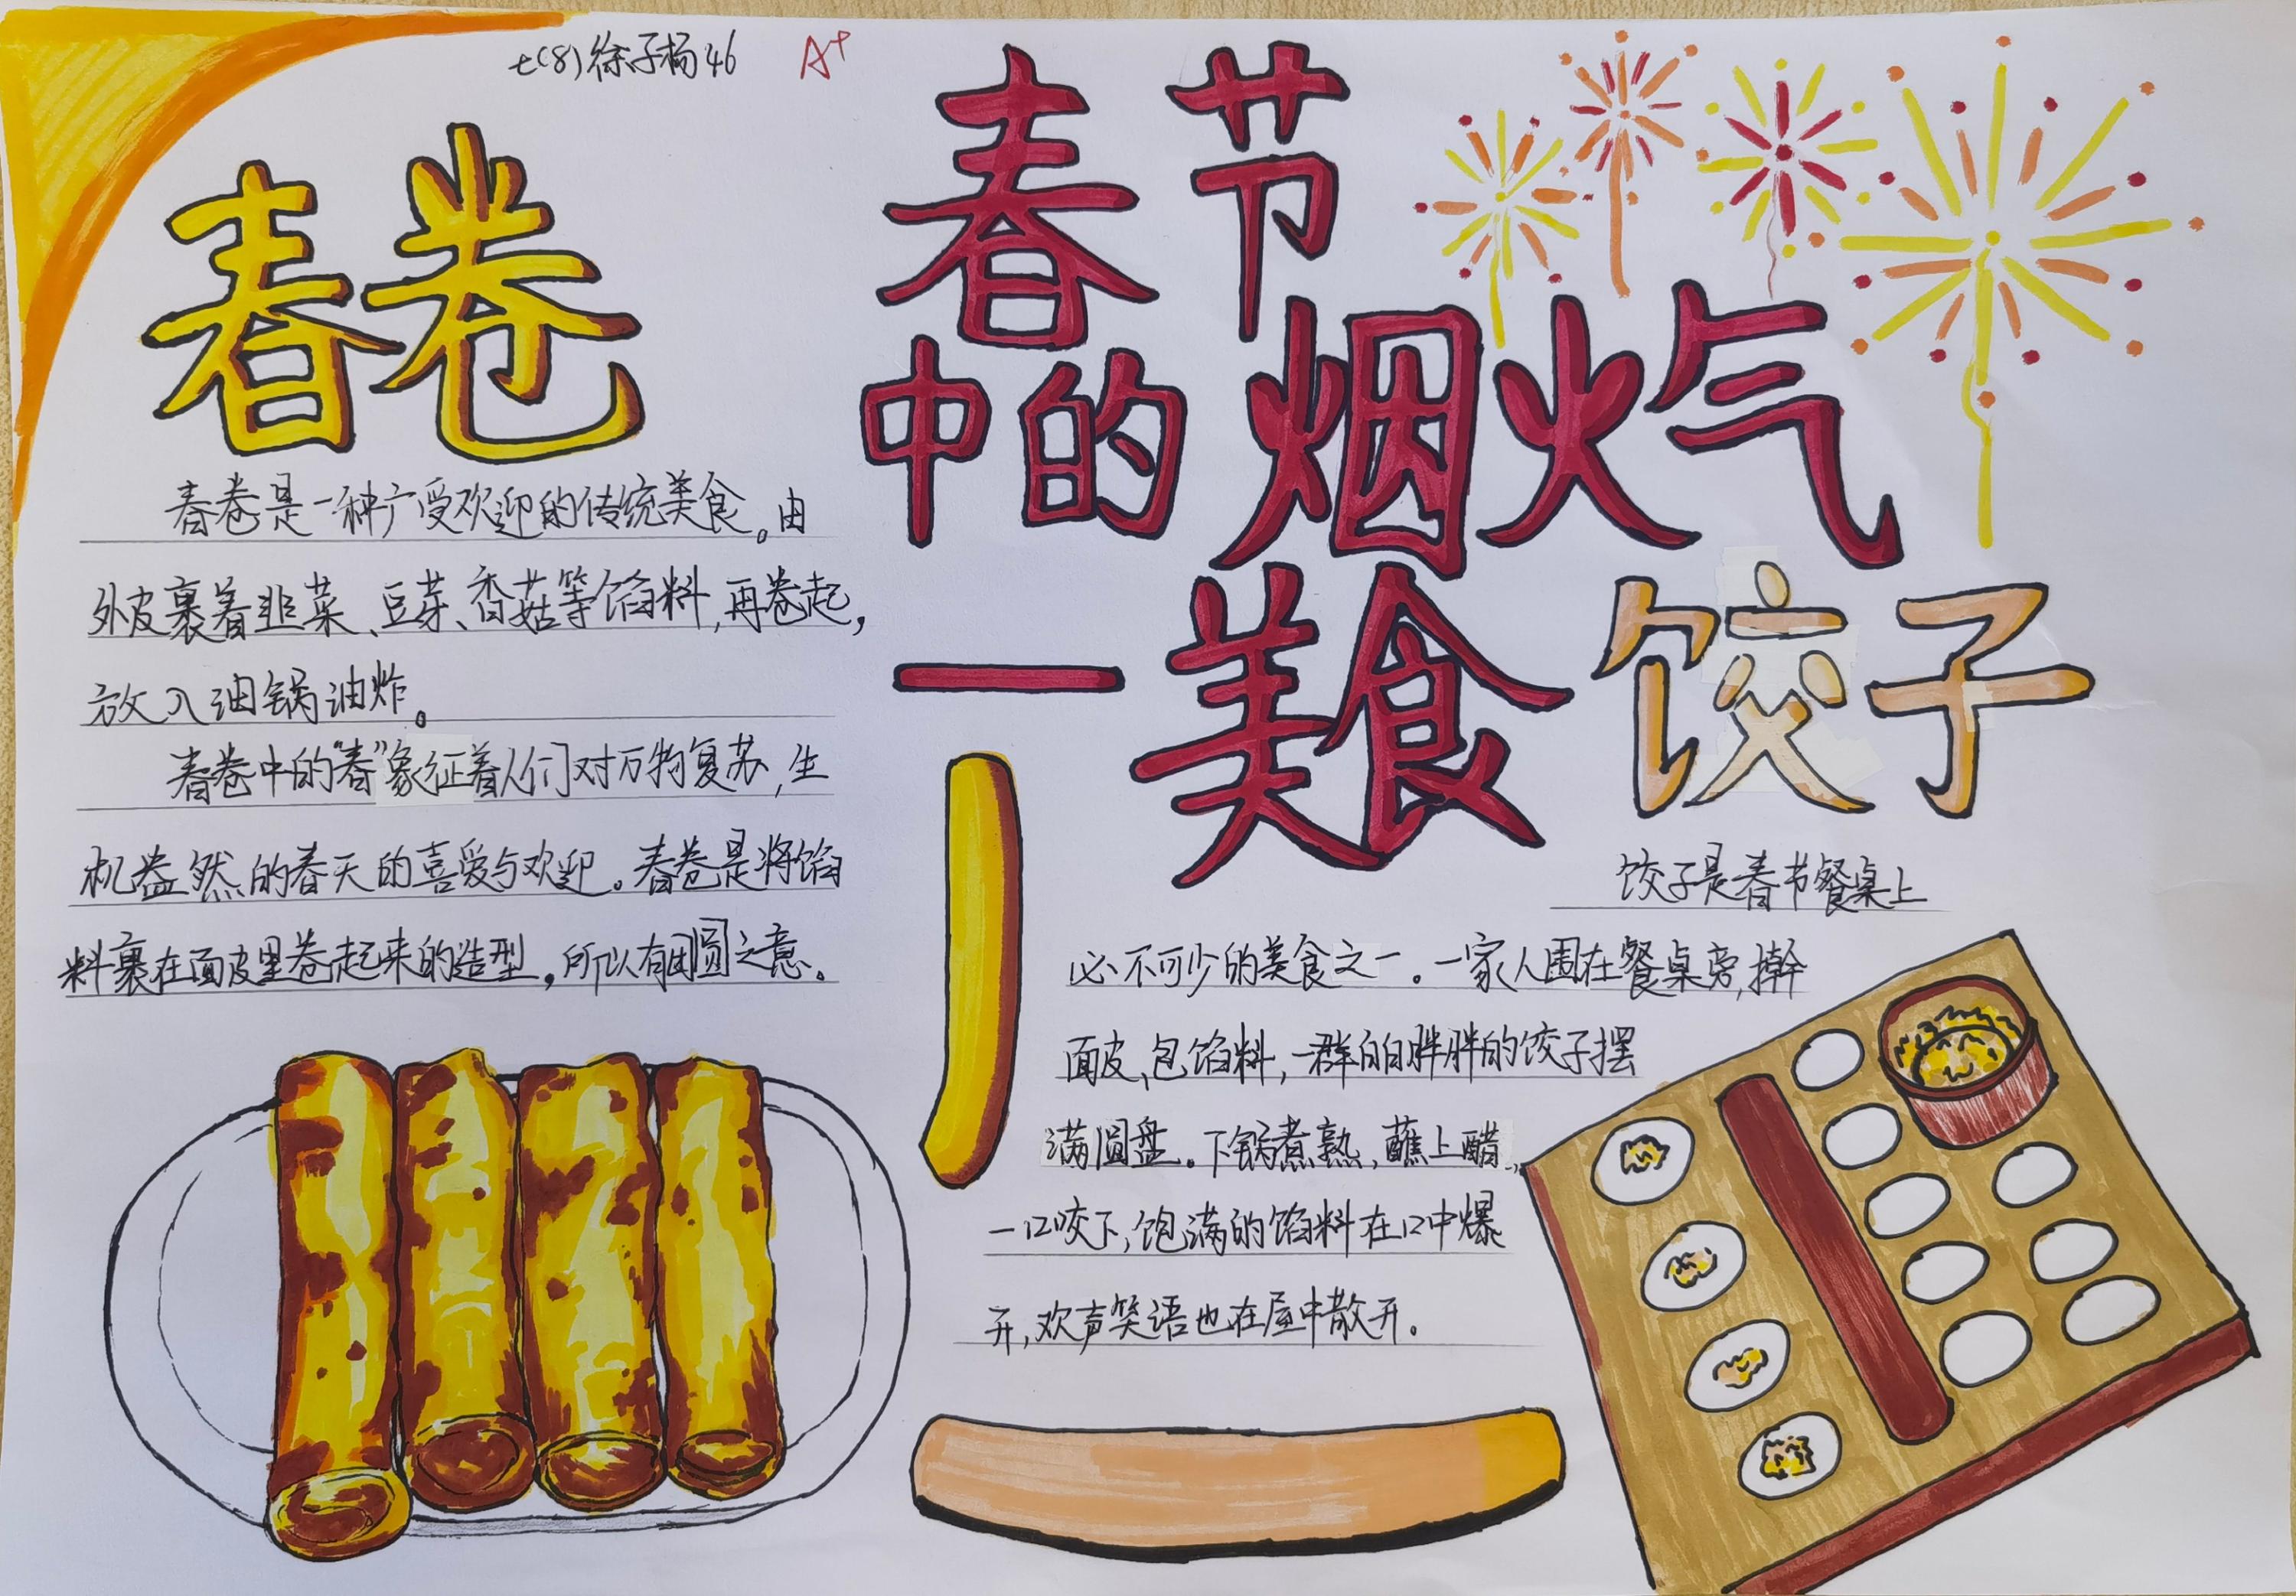 七(8)徐子杨46
A+
春节
中的烟火气
一美食
春卷
春卷是一种广受欢迎的传统美食。由
外皮裹着韭菜、豆芽、香菇等馅料,再卷起,
放入油锅油炸。
春卷中的"春"象征着人们对万物复苏,生
机盎然的春天的喜爱与欢迎。春卷是将馅
料裹在面皮里卷起来的造型,所以有团圆之意。
饺子
饺子是春节餐桌上
必不可少的美食之一。一家人围在餐桌旁,擀
面皮、包馅料,一群白白胖胖的饺子摆
满圆盘。下锅煮熟,蘸上醋,
一口咬下,饱满的馅料在口中爆
开,欢声笑语也在屋中散开。